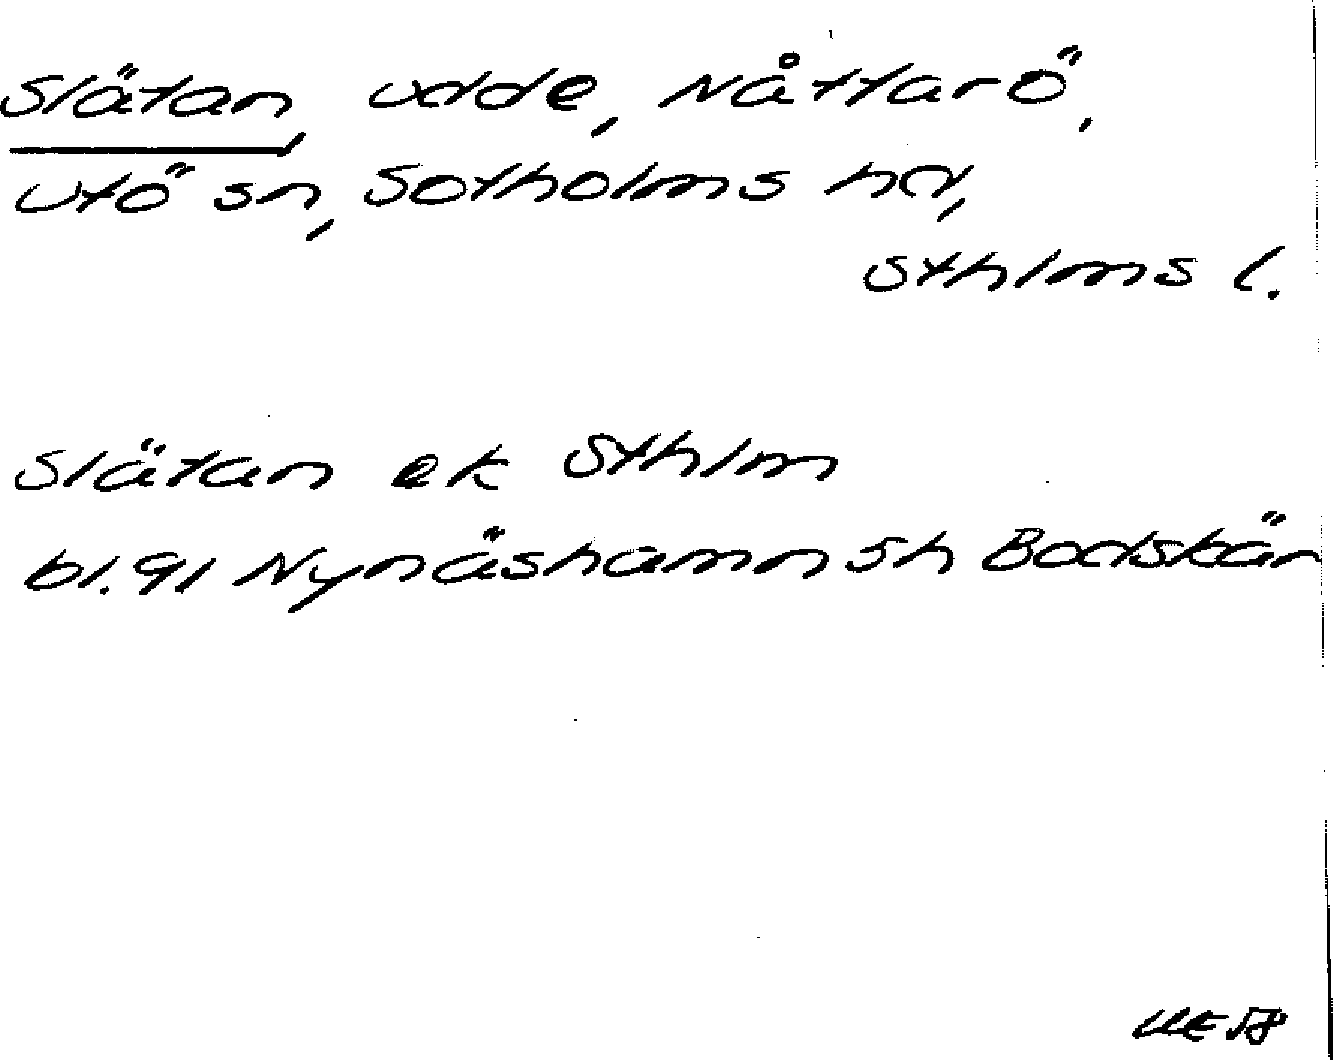 Slätan, udde, Nåttarö,
Utö sn, Sotholms hd,
Sthlms l.
Slätan ek Sthlm
bl. 91 Nynäshamn sh Bodskär